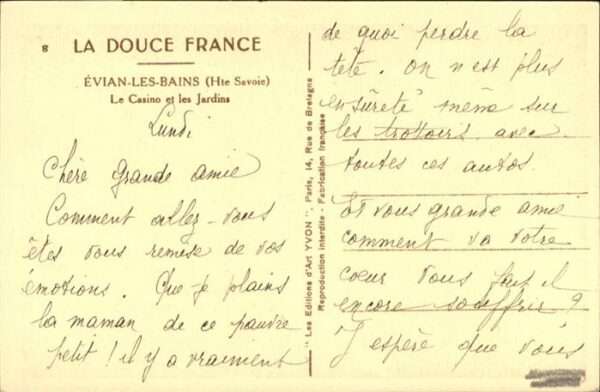 8
LA DOUCE FRANCE
ÉVIAN-LES-BAINS (Hte Savoie)
Le Casino et les Jardins
Lundi
Chère grande amie
Comment allez-vous
êtes vous remise de vos
émotions. Que je plains
la maman de ce pauvre
petit ! il y a vraiment
"Les Editions d'Art YVON", Paris, 14, Rue de Bretagne
Reproduction interdite - Fabrication française
de quoi perdre la
tête. On n'est plus
en sûreté même sur
les trottoirs avec
toutes ces autos.
Et vous grande amie
comment va votre
coeur vous fait il
encore souffrir ?
J'espère que vous